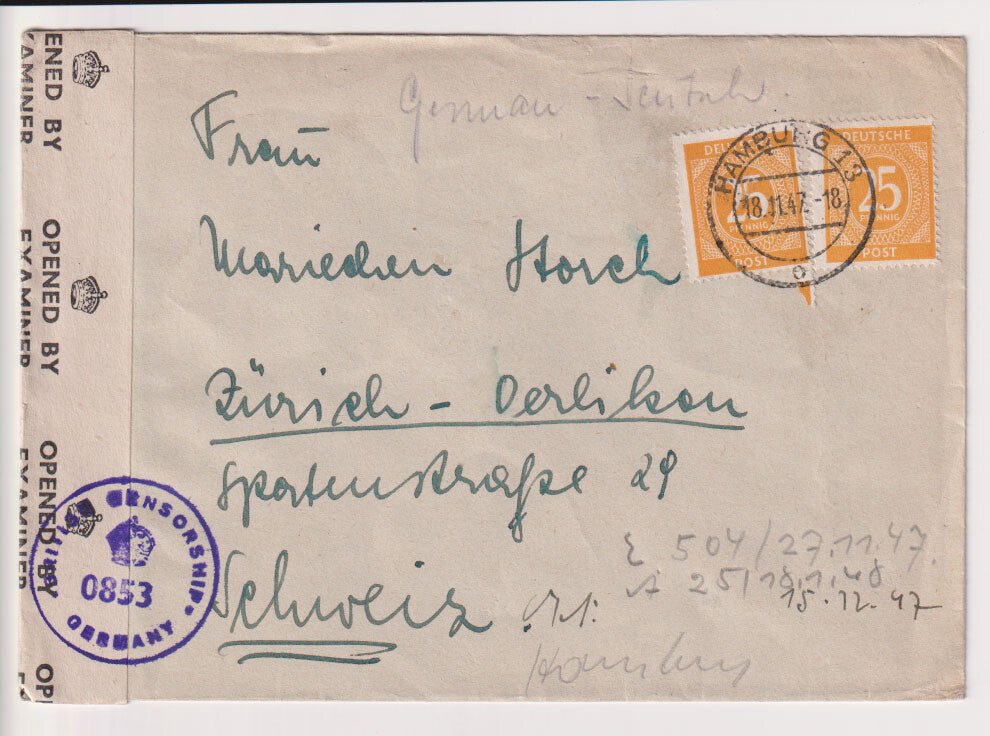 German - Deutsch.
Frau
Mariechen Storch
Zürich - Oerlikon
Spartenstraße 29
Schweiz
Hamburg
E 504/27.11.47.
A 25/18.1.48
15.12.47
DEUTSCHE
25
PFENNIG
POST
DEUTSCHE
25
PFENNIG
POST
HAMBURG 13
18.11.47.-18
o
ENED BY
XAMINER
OPENED BY
EXAMINER
OPENED BY
EXAMINER
OP
BRITISH CENSORSHIP.
0853
GERMANY